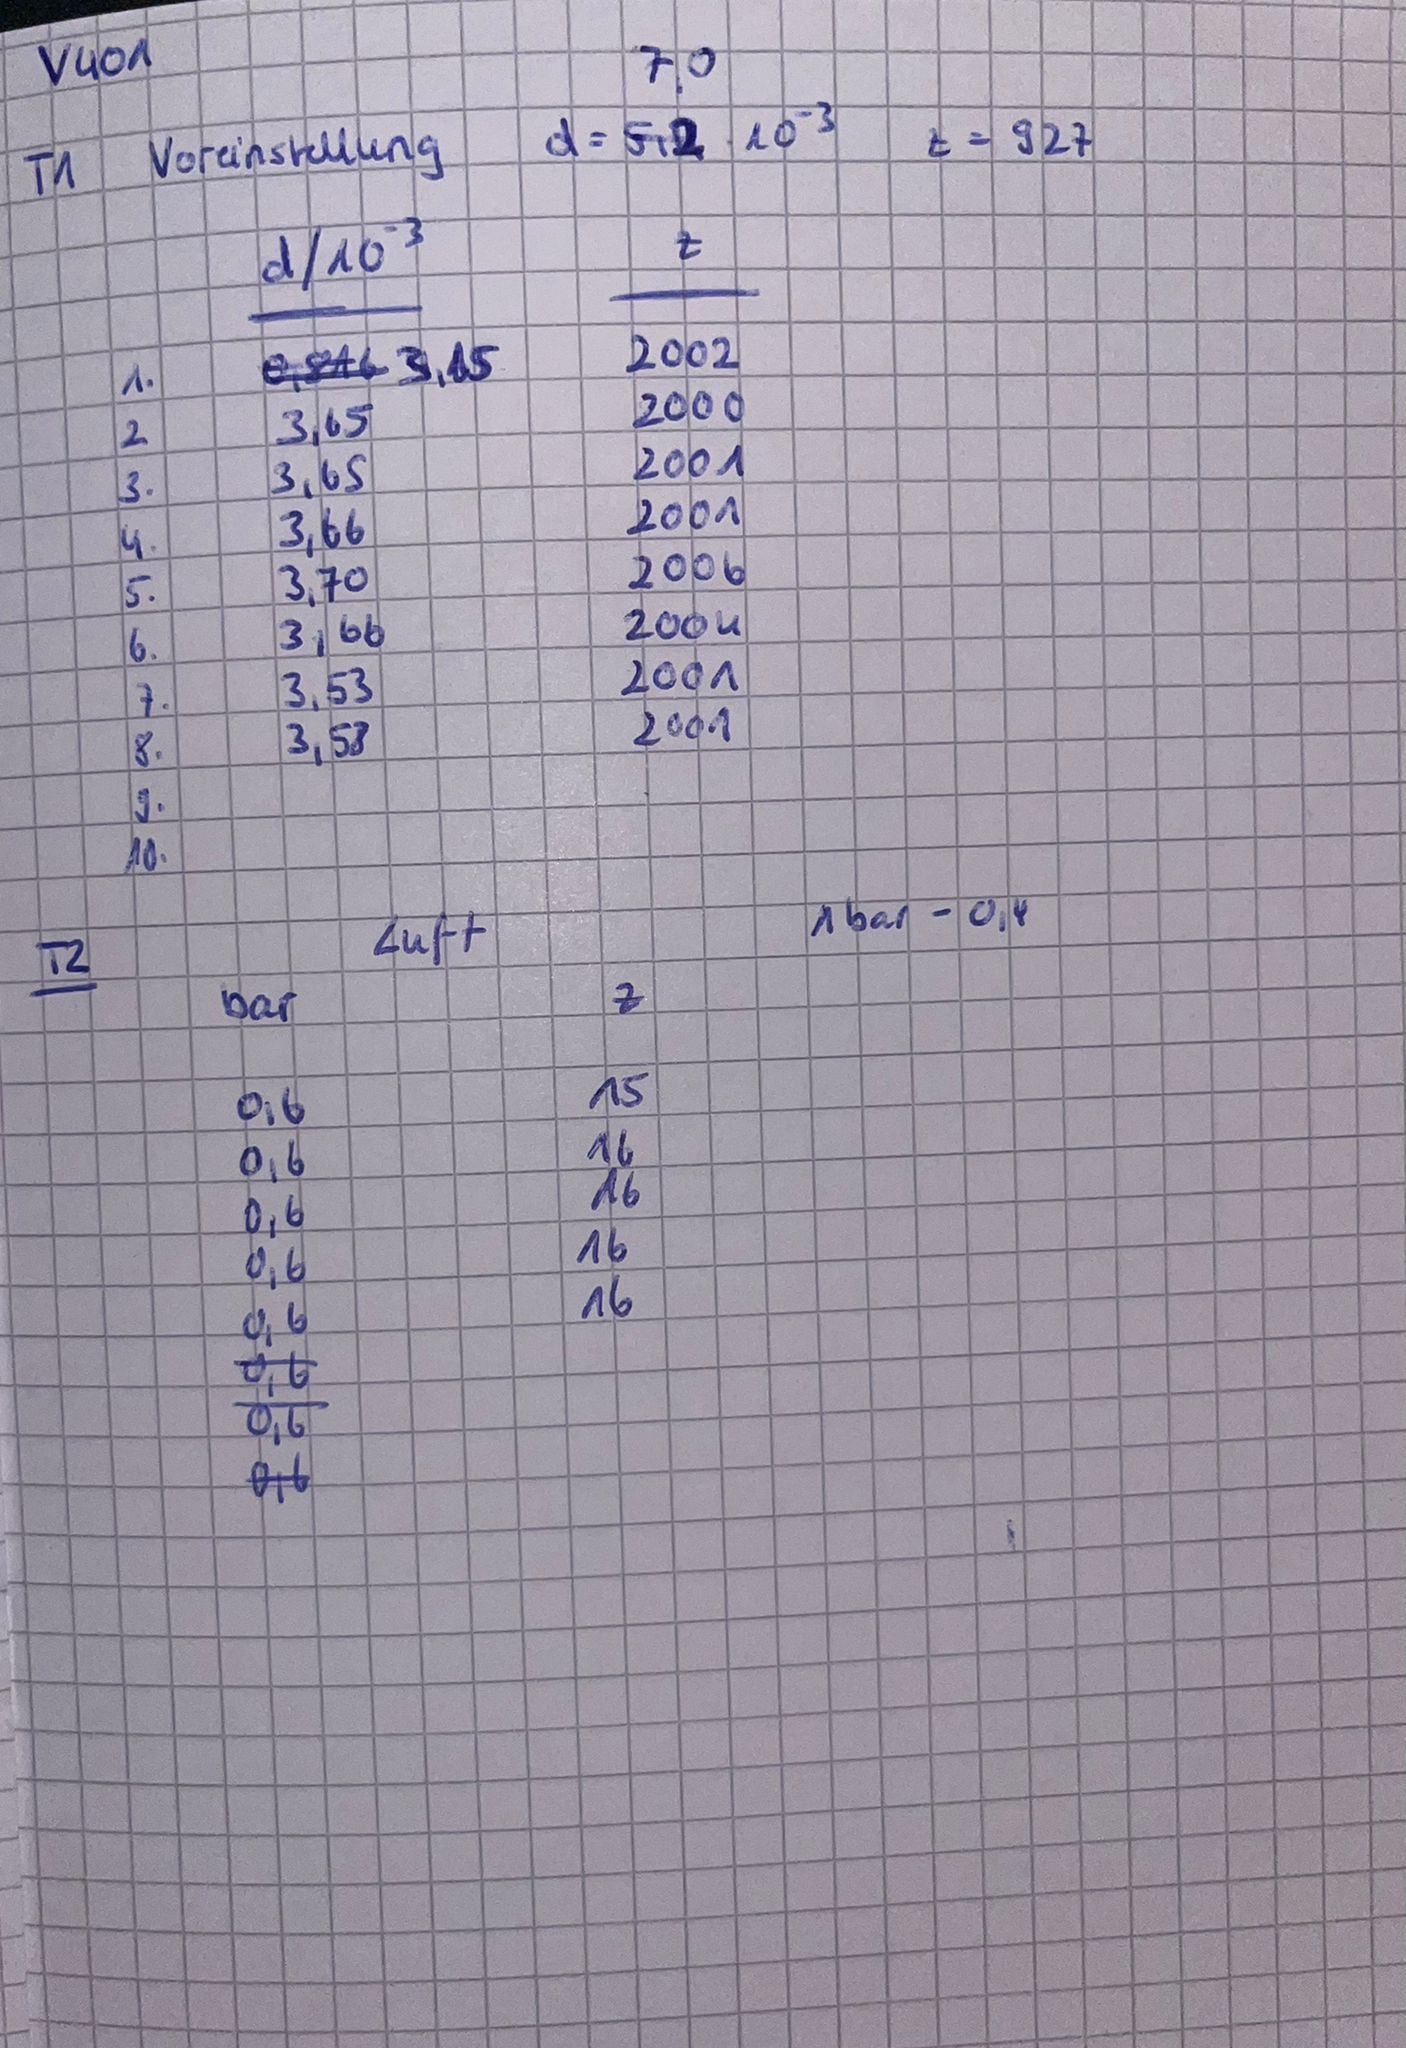 V401
7,0
T1 Voreinstellung d = 5,2 · 10⁻³ z = 927
d/10⁻³ z
1. 0,516 3,15 2002
2 3,65 2000
3. 3,65 2001
4. 3,66 2001
5. 3,70 2006
6. 3,66 2004
7. 3,53 2001
8. 3,53 2001
9.
10.
T2 Luft 1 bar - 0,4
bar z
0,6 15
0,6 16
0,6 16
0,6 16
0,6 16
0,6
0,6
0,6